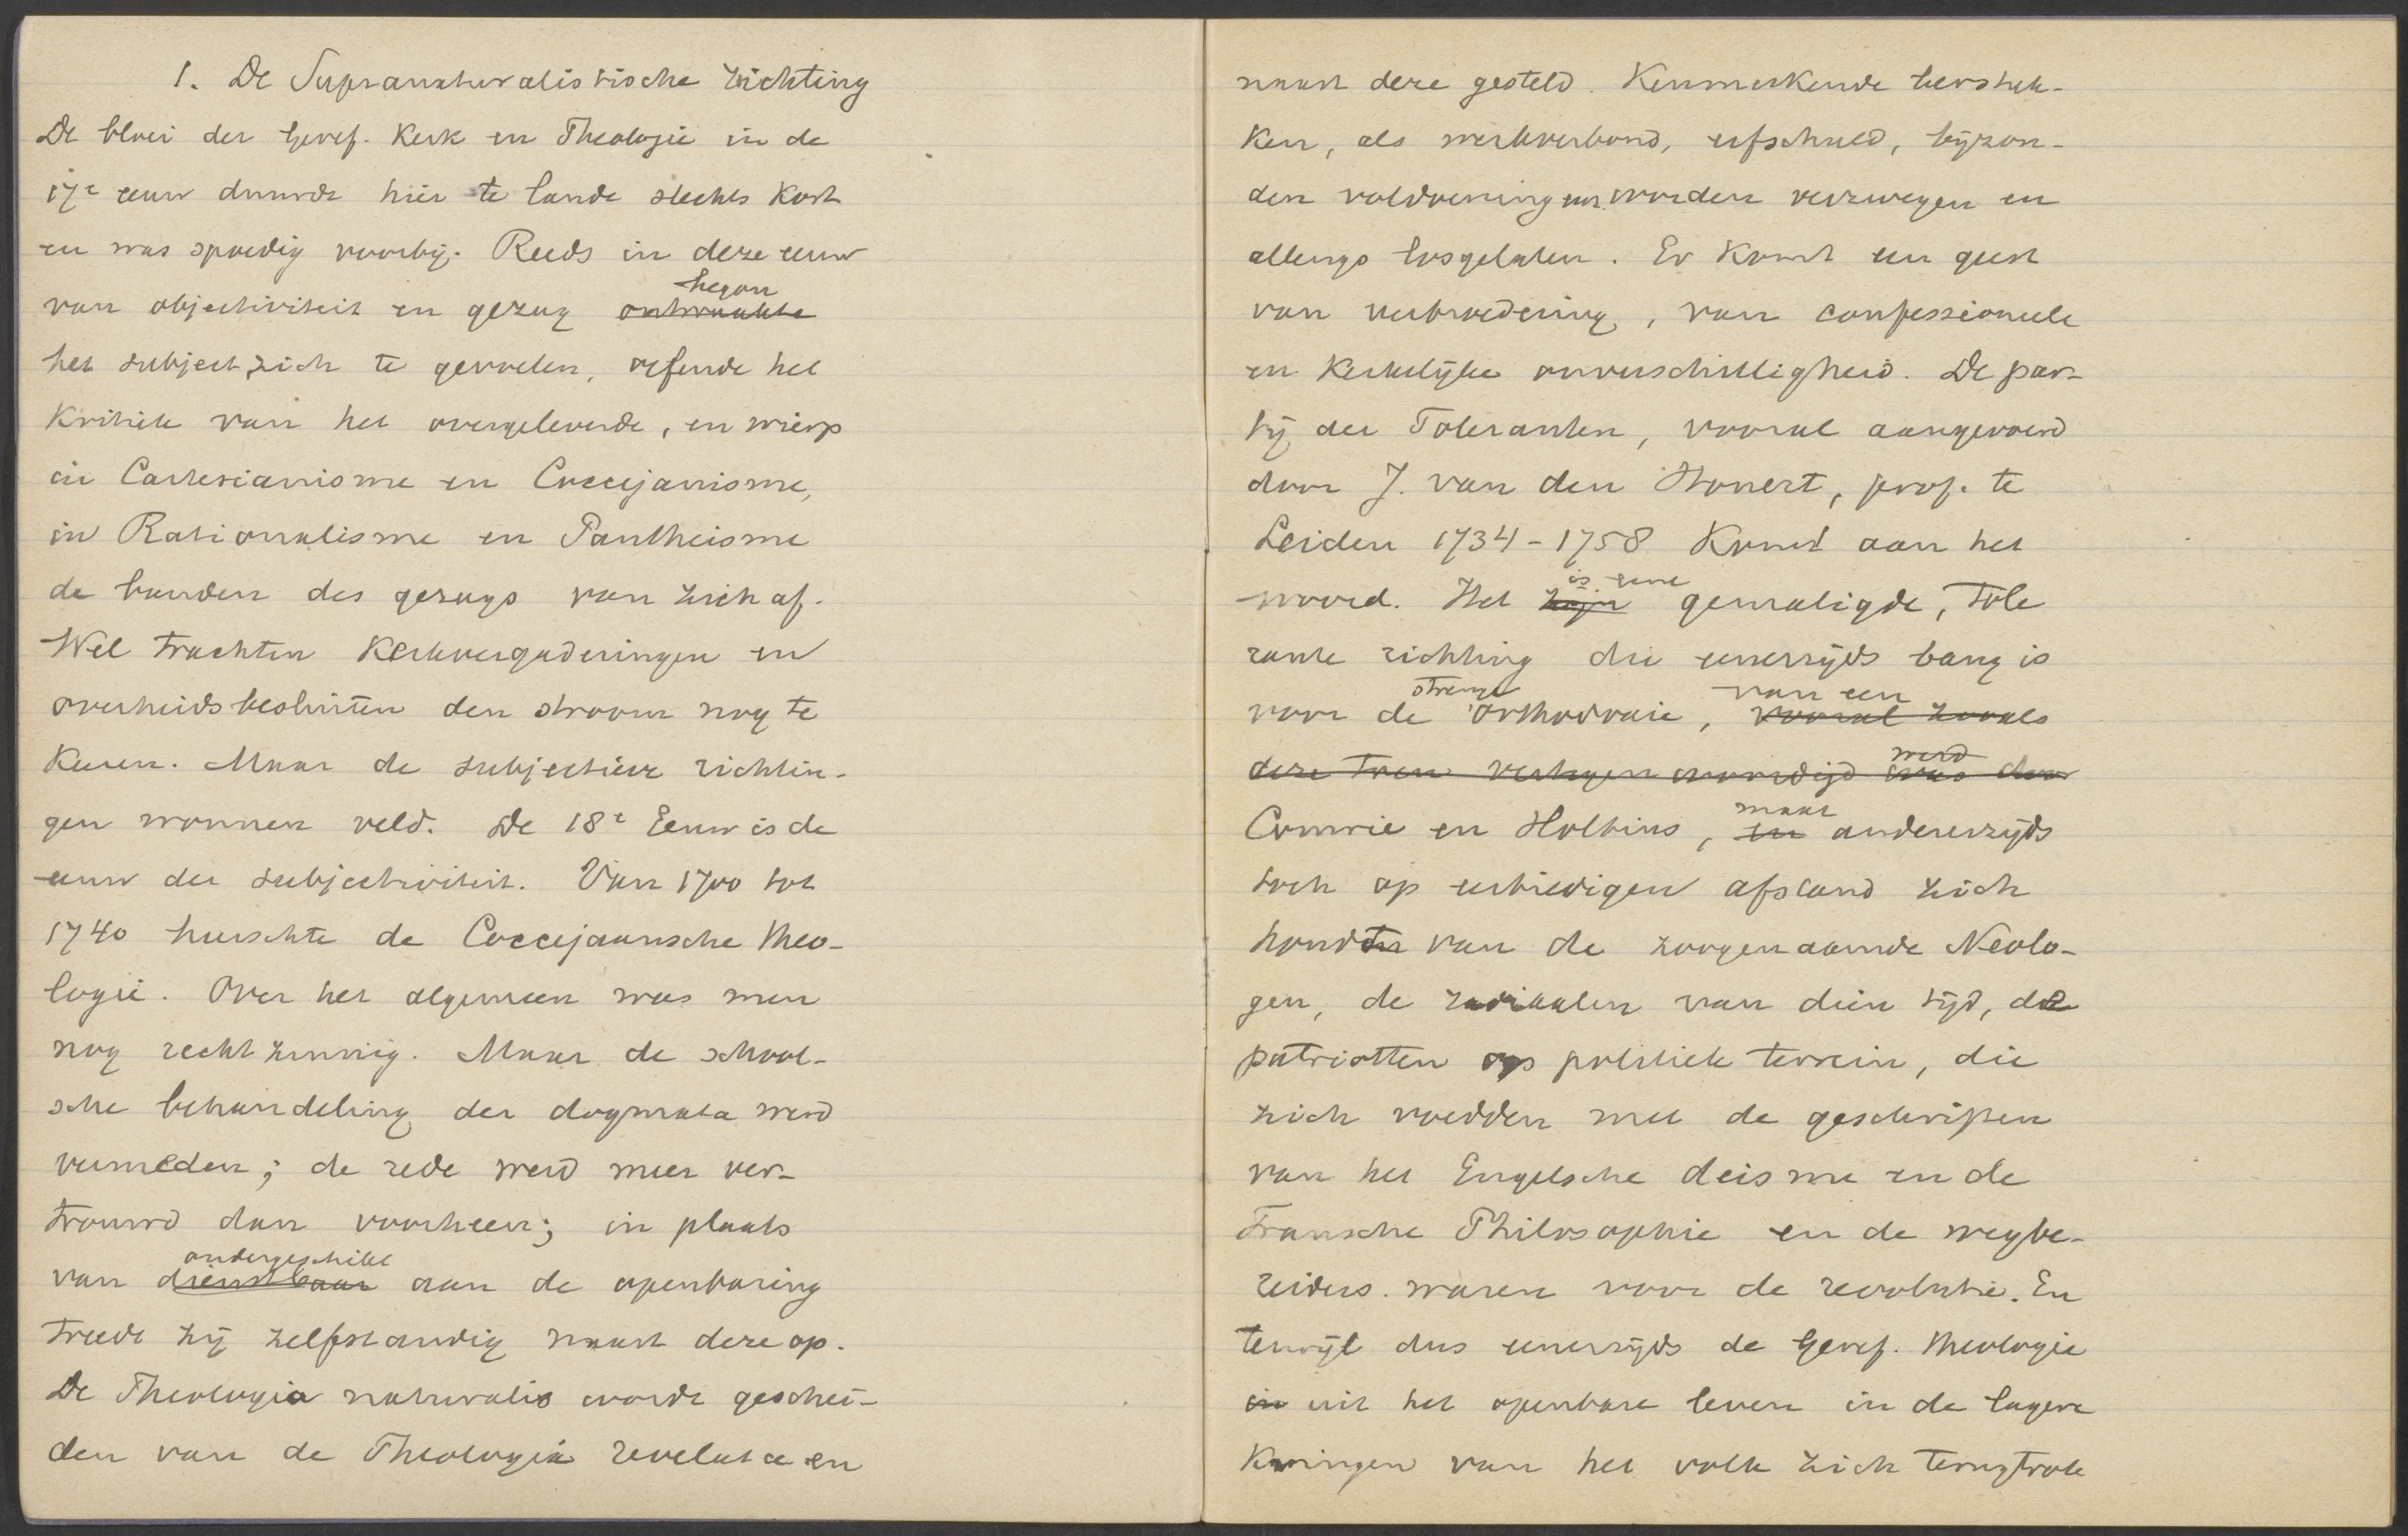 1. De Supranaturalistische richting
De bloei der Geref. Kerk en Theologie in de
17e eeuw duurde hier te lande slechts kort
en was spoedig voorbij. Reeds in deze eeuw
van objectiviteit en gezag ontwaakte began
het subject zich te gevoelen, oefende het
kritiek van het overgeleverde, en wierp
in Cartesianisme en Coccejanisme,
in Rationalisme en Pantheisme
de banden des gezags van zich af.
Wel trachten Kerkvergaderingen en
overheidsbesluiten den stroom nog te
keeren. Maar de subjectieve richtin-
gen wonnen veld. De 18e Eeuw is de
eeuw der subjectiviteit. Van 1700 tot
1740 heerschte de Coccejaansche theo-
logie. Over het algemeen was men
nog rechtzinnig. Maar de school-
sche behandeling der dogmata werd
vermeden; de rede werd meer ver-
trouwd dan voorheen; in plaats
van dienstbaar ondergeschikt aan de openbaring
treedt zij zelfstandig naast deze op.
De Theologia naturalis wordt geschei-
den van de Theologia revelata en
naast deze gesteld. Kenmerkende leerstuk-
ken, als werkverbond, erfschuld, bijzon-
den voldoening enz. worden verzwegen en
allengs losgelaten. Er komt een geest
van verbroedering, van confessioneele
en kerkelijke onverschilligheid. De par-
tij der Toleranten, vooral aangevoerd
door J. van den Honert, prof. te
Leiden 1734-1758 komt aan het
woord. Het zijn is eene gematigde, tole
rante richting die eenerzijds bang is
voor de strenge orthodoxie, vooral zooals van een
deze toen vertegenwoordigd was werd door
Comrie en Holtius, en maar andererzijds
toch op eerbiedigen afstand zich
houdt van de zoogenaamde Neolo-
gen, de radikalen van dien tijd, de
patriotten op politiek terrein, die
zich voedden met de geschriften
van het Engelsche deisme en de
Fransche Philosophie en de wegbe-
reiders waren voor de revolutie. En
terwijl dus eenerzijds de Geref. theologie
in uit het openbare leven in de lagere
Kringen van het volk zich terugtrok